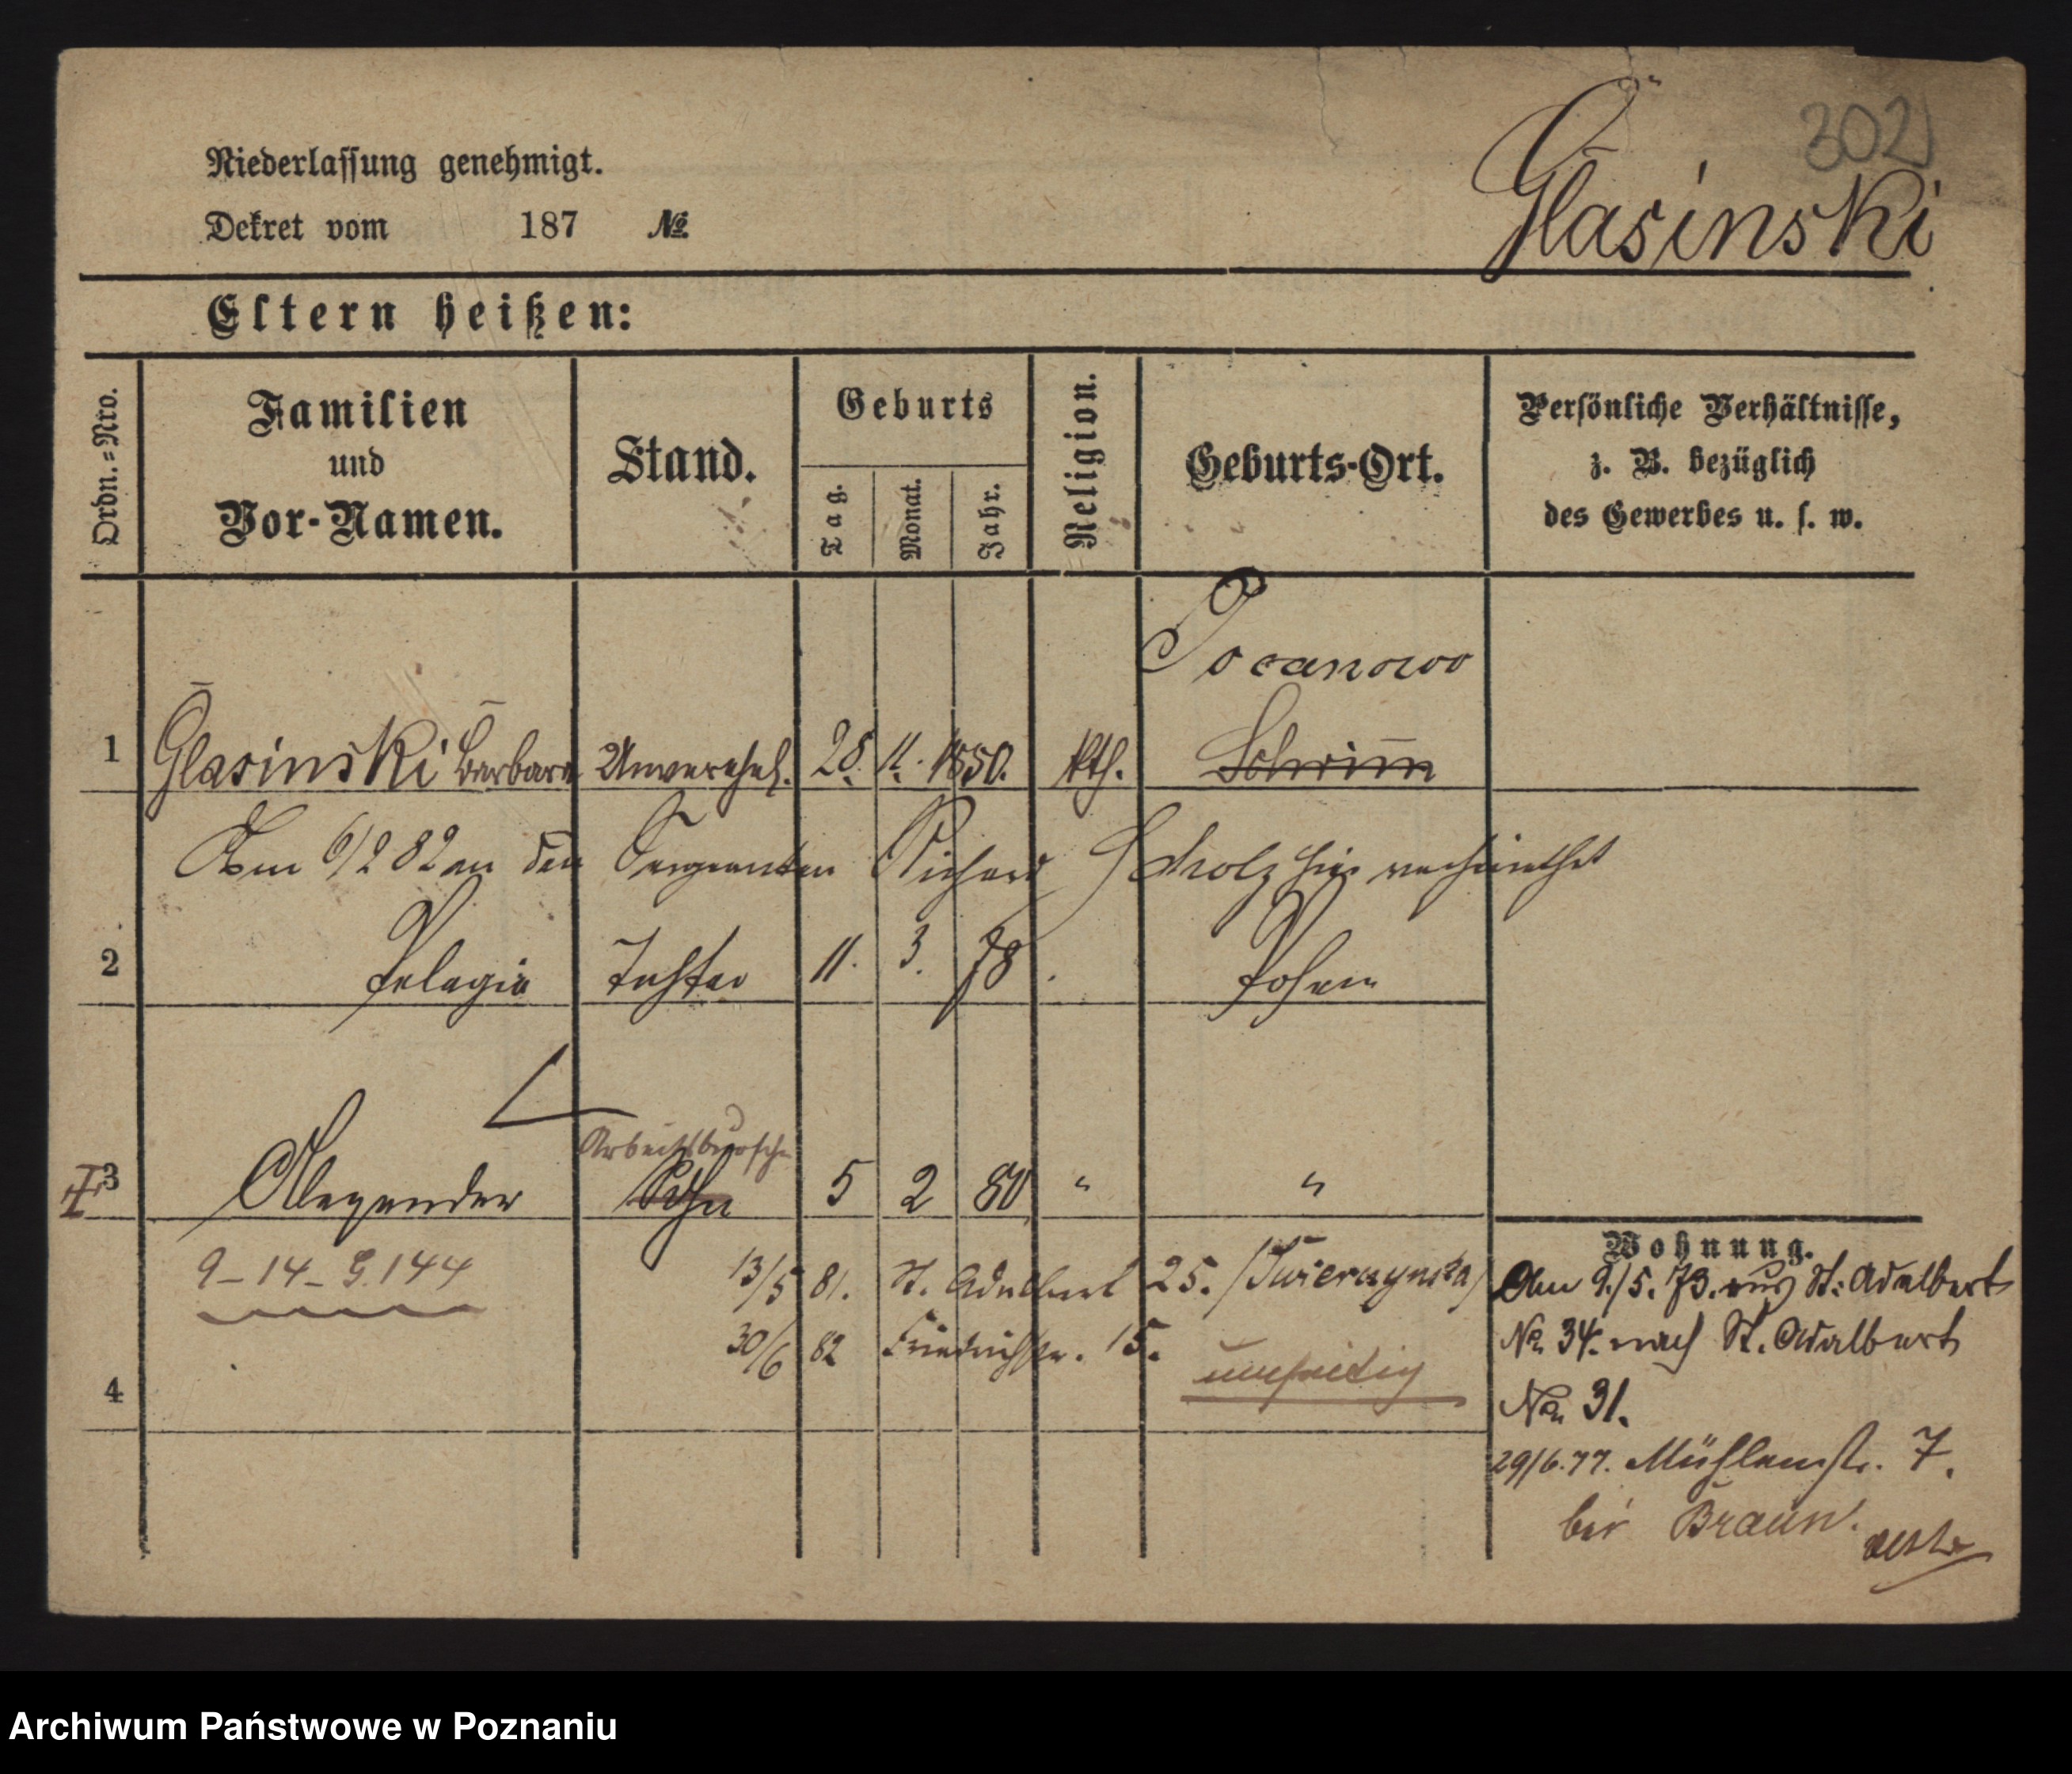 302
Niederlassung genehmigt.
Dekret vom 187 №
Glasinski
Eltern heißen:
Ordn.-Nro.
Familien
und
Vor-Namen.
Stand.
Geburts
Tag.
Monat.
Jahr.
Religion.
Geburts-Ort.
Persönliche Verhältnisse,
z. B. bezüglich
des Gewerbes u. s. w.
Pocanowo
1 Glasinski Barbara Unverehel. 28. 11. 1850. kth. Schrimm
Am 6/2 82 an den Sergeanten Richard Scholz hier verheirathet
2 Pelagia Tochter 11. 3. 78. Posen
Arbeitsbursche
3 Alexander Sohn 5 2 80 " "
Wohnung.
9-14-G.144
13/5 81. St. Adalbert 25.
30/6 82 Friedrichstr. 15.
4
Am 9./5. 73. aus St. Adalbert
No 34. nach St. Adalbert
No 31.
29/6.77. Mühlenstr. 7.
bei Braun.
Archiwum Państwowe w Poznaniu